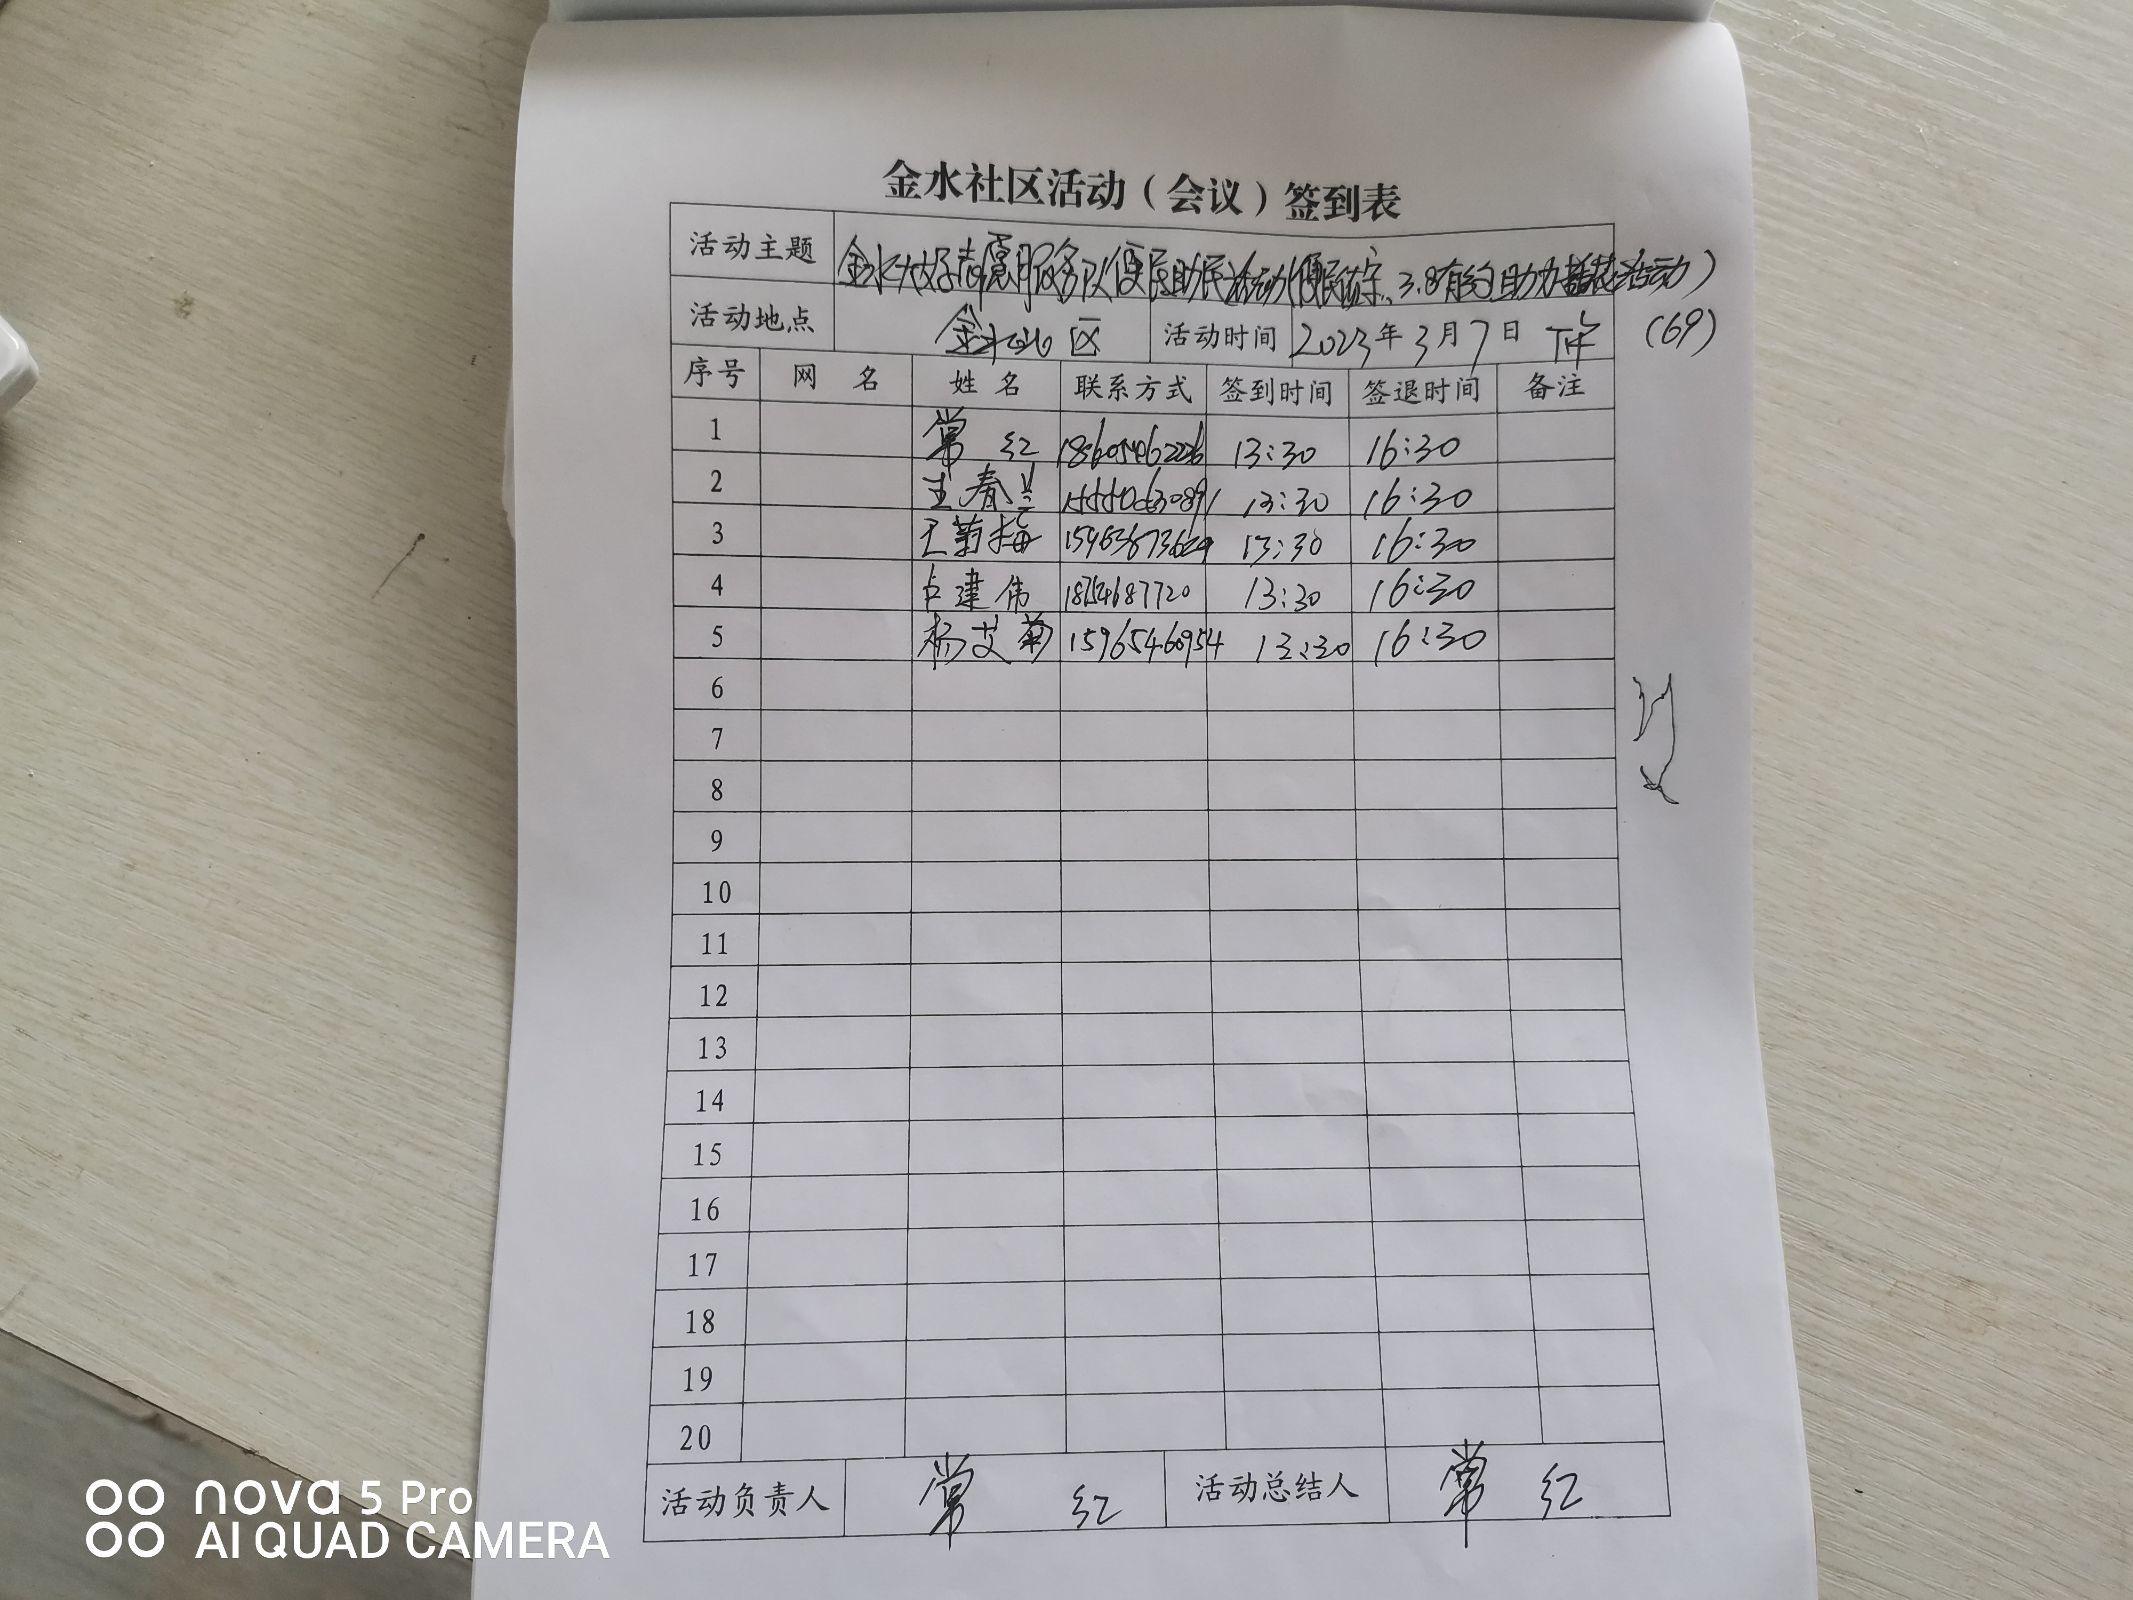 金水社区活动（会议）签到表
活动主题 金水大好志愿服务队便民助民活动(便民 3.8有约 助力插花活动)
活动地点 金水社区 活动时间 2023年3月7日 下午 (69)
序号 网名 姓名 联系方式 签到时间 签退时间 备注
1 常红 13:30 16:30
2 王春兰 13:30 16:30
3 王菊梅 13:30 16:30
4 卢建伟 18254687720 13:30 16:30
5 杨艾菊 15965460954 13:30 16:30
6
7
8
9
10
11
12
13
14
15
16
17
18
19
20
活动负责人 常红 活动总结人 常红
nova 5 Pro
AI QUAD CAMERA